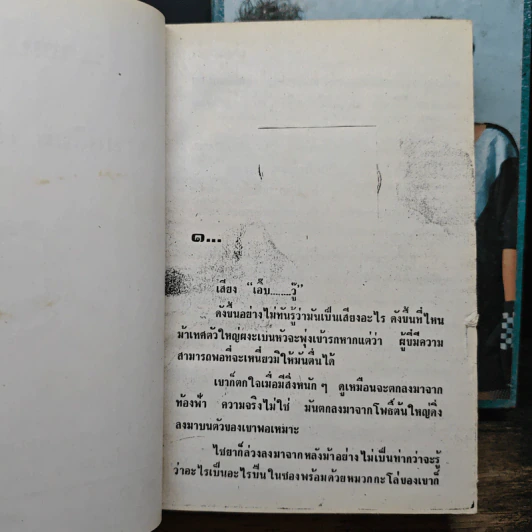 ๑...
เสียง “เอ็บ........วู๊”
ดังขึ้นอย่างไม่ทันรู้ว่ามันเป็นเสียงอะไร ดังขึ้นที่ไหน
ม้าเทศตัวใหญ่ผงะเบนหัวจะพุ่งเข้ารกหากแต่ว่า ผู้ขี่มีความ
สามารถพอที่จะเหนี่ยวมิให้มันตื่นได้
เขาก็ตกใจเมื่อมีสิ่งหนัก ๆ ดูเหมือนจะตกลงมาจาก
ท้องฟ้า ความจริงไม่ใช่ มันตกลงมาจากโพธิ์ต้นใหญ่ดึ่ง
ลงมาบนตัวของเขาพอเหมาะ
ไชยาก็ล่วงลงมาจากหลังม้าอย่างไม่เป็นท่ากว่าจะรู้
ว่าอะไรเป็นอะไรปืนในซองพร้อมด้วยหมวกกะโล่ของเขาก็